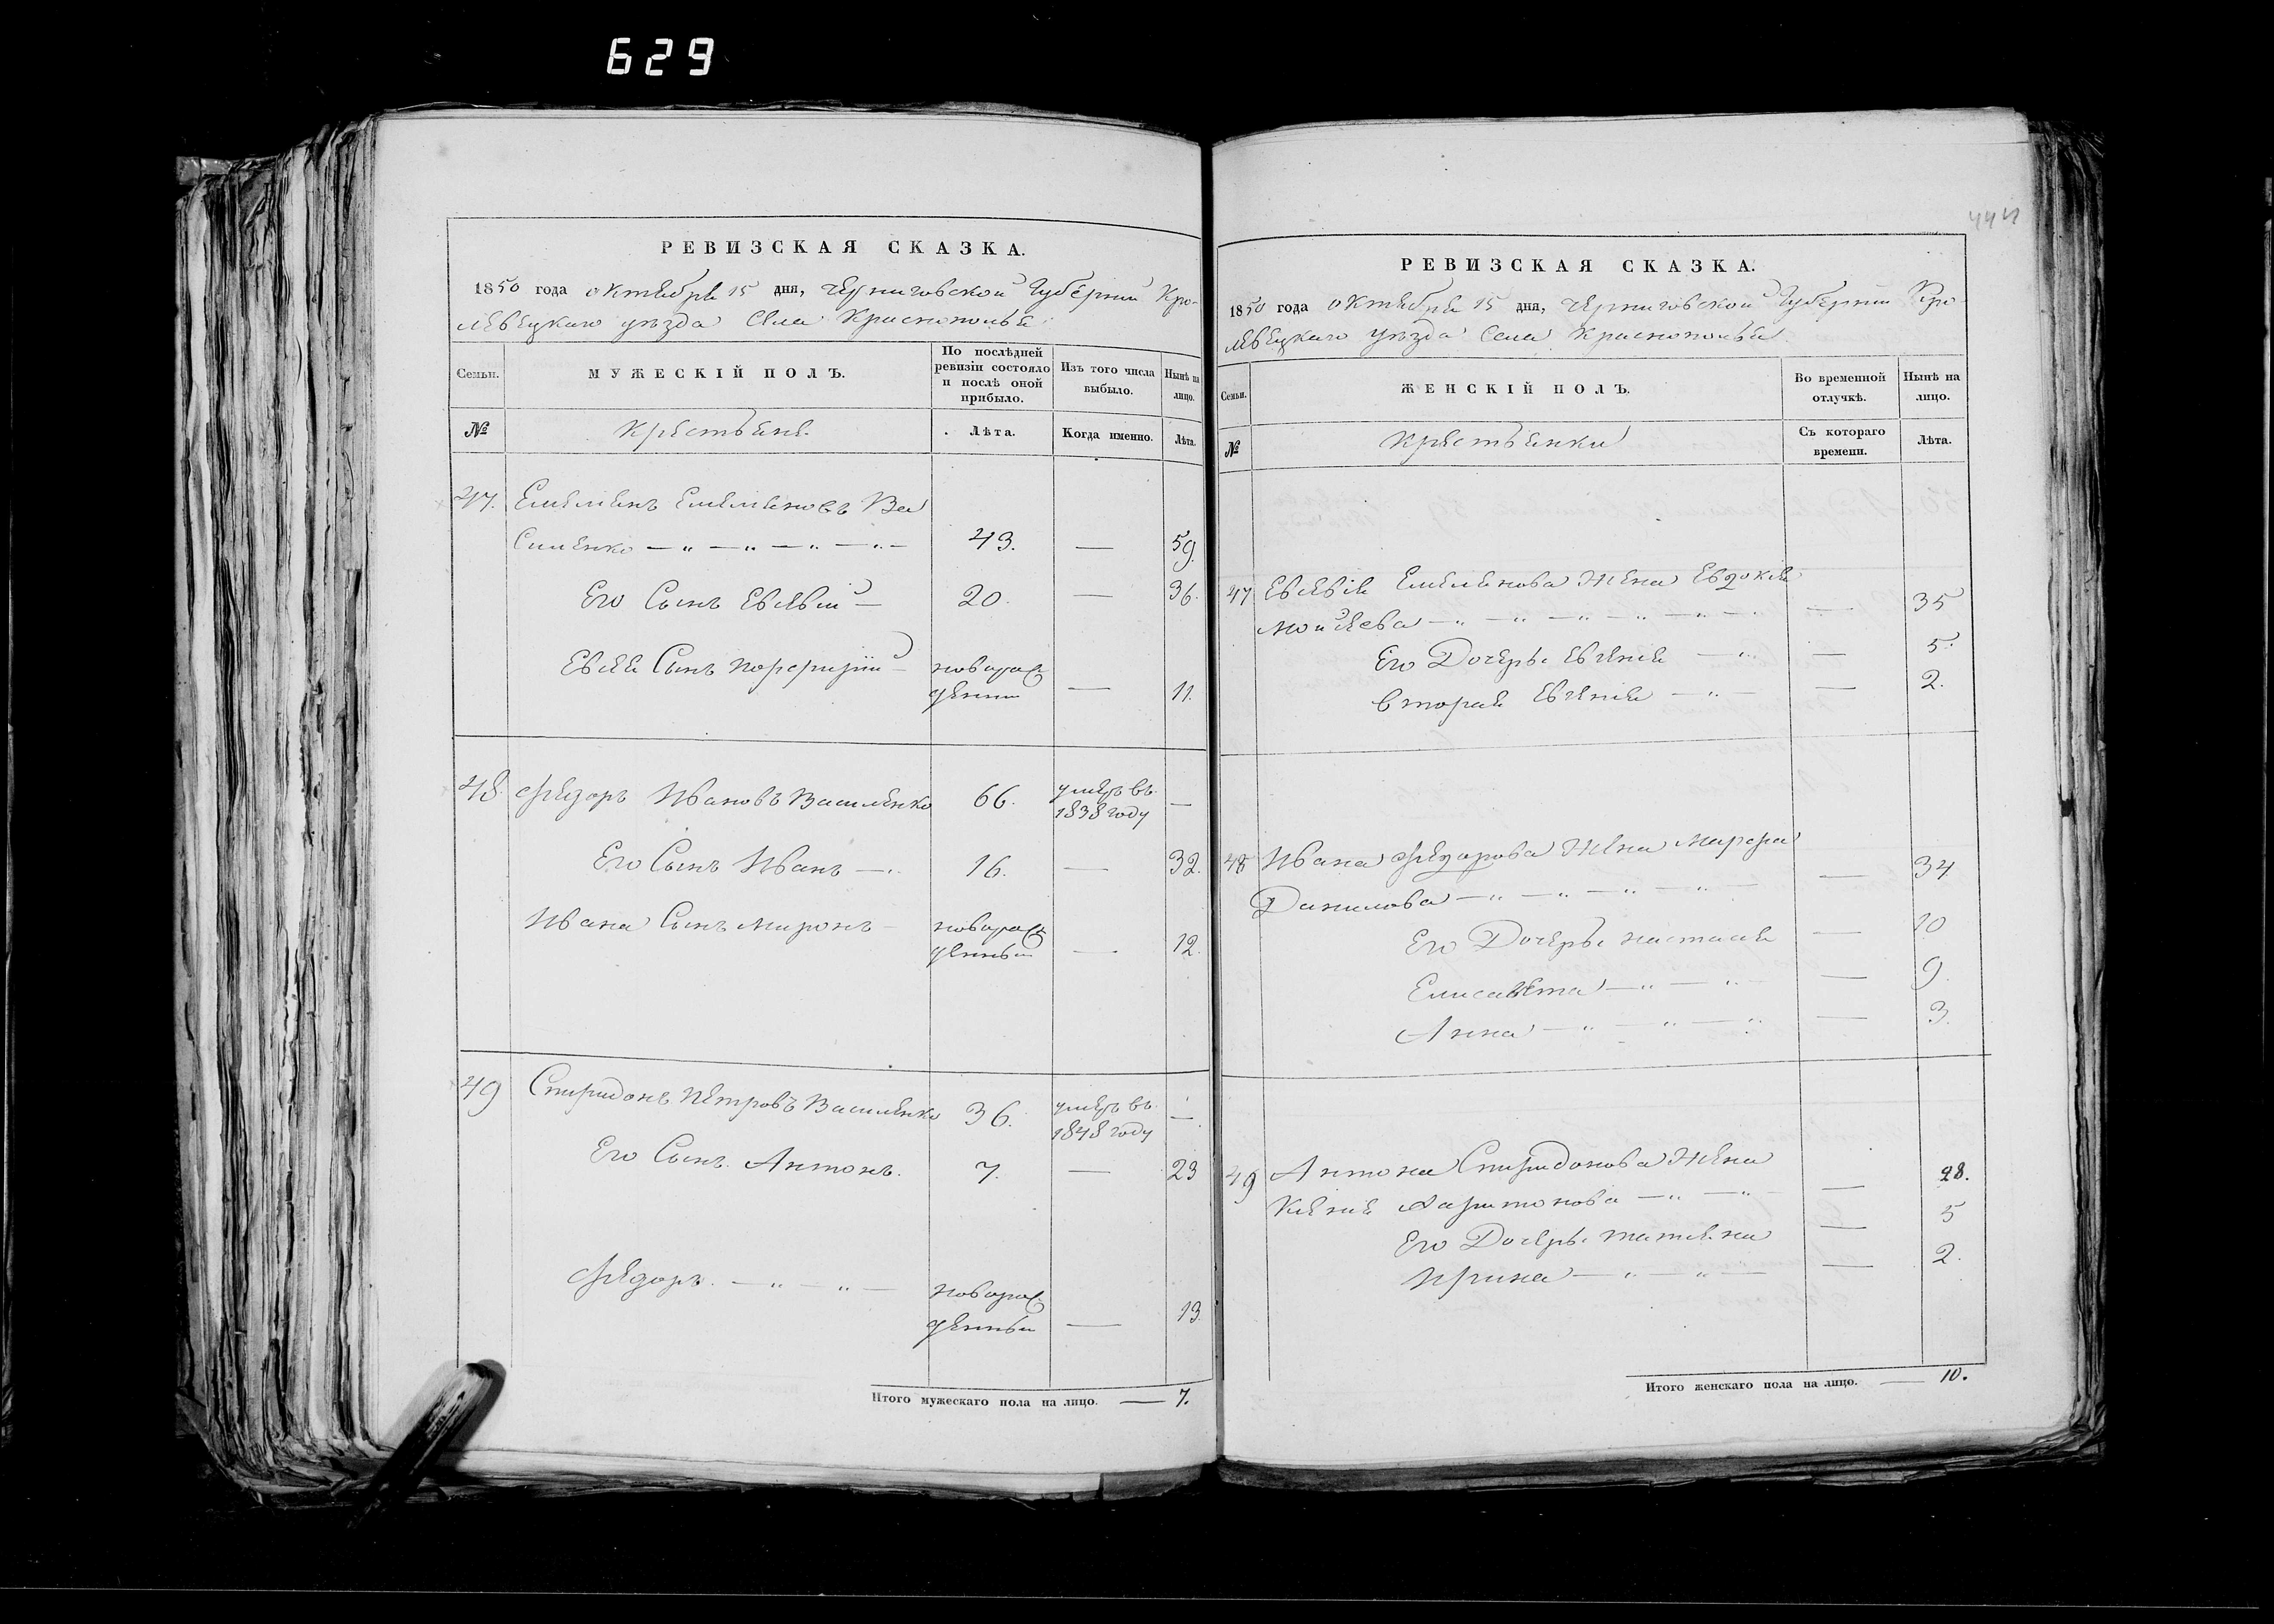 629
РЕВИЗСКАЯ СКАЗКА.
1850 года октября 15 дня, Черниговской Губерніи Кро-
левецкаго уѣзда Села Краснополья
Семьи.
МУЖЕСКІЙ ПОЛЪ.
По послѣдней
ревизіи состояло
и послѣ оной
прибыло.
Изъ того числа
выбыло.
Нынѣ на
лицо.
№
Крестьяне.
Лѣта.
Когда именно.
Лѣта.
47. Емельянъ Емельяновъ Ва
силенко — „ — „ — „ — „ — 43. — 59.
Его Сынъ Евсевій — 20. — 36.
Сынъ Порфирій — новорож
денны — 11.
48. Федоръ Ивановъ Василенко 66. умеръ въ
1838 году —
Его Сынъ Иванъ — „ 16. — 32.
Ивана Сынъ Миронъ — новорож
денный — 12.
49 Спиридонъ Петровъ Василенко 36. умеръ въ
1848 году —
Его Сынъ Антонъ. 7. — 23
Федоръ. — „ — „ — новорож
денный — 13.
Итого мужескаго пола на лицо. — 7.
РЕВИЗСКАЯ СКАЗКА.
1850 года октября 15 дня, Черниговской Губерніи Кро-
левецкаго уѣзда Села Краснополья
Семьи.
ЖЕНСКІЙ ПОЛЪ.
Во временной
отлучкѣ.
Нынѣ на
лицо.
№
Крестьянки
Съ котораго
времени.
Лѣта.
47 Евсевія Емельянова Жена Евдокія
Мойсеева — „ — „ — „ — „ — „ — — 35
Его Дочерь Евгенія — „ — 5.
вторая Евгенія — „ — — 2.
48 Ивана Федорова Жена Марфа
Данилова — „ — „ — „ — „ — — 34
Его Дочерь Настасія — 10
Елисавета — „ — „ — — 9.
Анна — „ — „ — „ — 3.
49 Антона Спиридонова Жена
Ксенія Харитонова — „ — „ — — 28.
Его Дочерь Татіяна — 5
Ирина — „ — „ — — 2.
Итого женскаго пола на лицо. — 10.